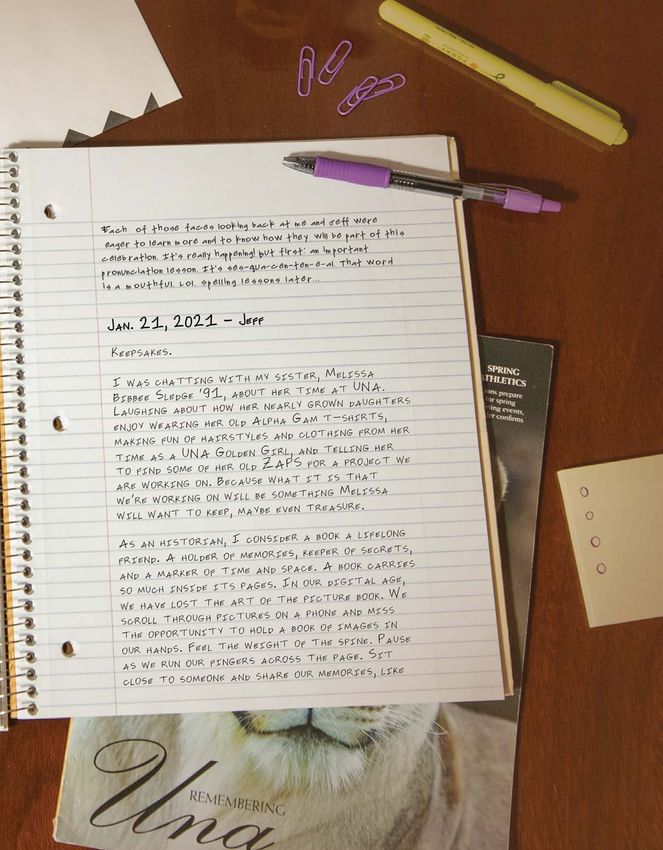 Each of those faces looking back at me and Jeff were
eager to learn more and to know how they will be part of this
celebration. It's really happening! But first: an important
pronunciation lesson. It's ses-qua-cen-ten-e-al. That word
is a mouthful. Lol. Spelling lessons later...
JAN. 21, 2021 – JEFF
KEEPSAKES.
I WAS CHATTING WITH MY SISTER, MELISSA
BIBBEE SLEDGE '91, ABOUT HER TIME AT UNA.
LAUGHING ABOUT HOW HER NEARLY GROWN DAUGHTERS
ENJOY WEARING HER OLD ALPHA GAM T-SHIRTS,
MAKING FUN OF HAIRSTYLES AND CLOTHING FROM HER
TIME AS A UNA GOLDEN GIRL, AND TELLING HER
TO FIND SOME OF HER OLD ZAPS FOR A PROJECT WE
ARE WORKING ON. BECAUSE WHAT IT IS THAT
WE'RE WORKING ON WILL BE SOMETHING MELISSA
WILL WANT TO KEEP, MAYBE EVEN TREASURE.
AS AN HISTORIAN, I CONSIDER A BOOK A LIFELONG
FRIEND. A HOLDER OF MEMORIES, KEEPER OF SECRETS,
AND A MARKER OF TIME AND SPACE. A BOOK CARRIES
SO MUCH INSIDE ITS PAGES. IN OUR DIGITAL AGE,
WE HAVE LOST THE ART OF THE PICTURE BOOK. WE
SCROLL THROUGH PICTURES ON A PHONE AND MISS
THE OPPORTUNITY TO HOLD A BOOK OF IMAGES IN
OUR HANDS. FEEL THE WEIGHT OF THE SPINE. PAUSE
AS WE RUN OUR FINGERS ACROSS THE PAGE. SIT
CLOSE TO SOMEONE AND SHARE OUR MEMORIES, LIKE
SPRING
ATHLETICS
prepare
spring
events,
confirms
REMEMBERING
Una